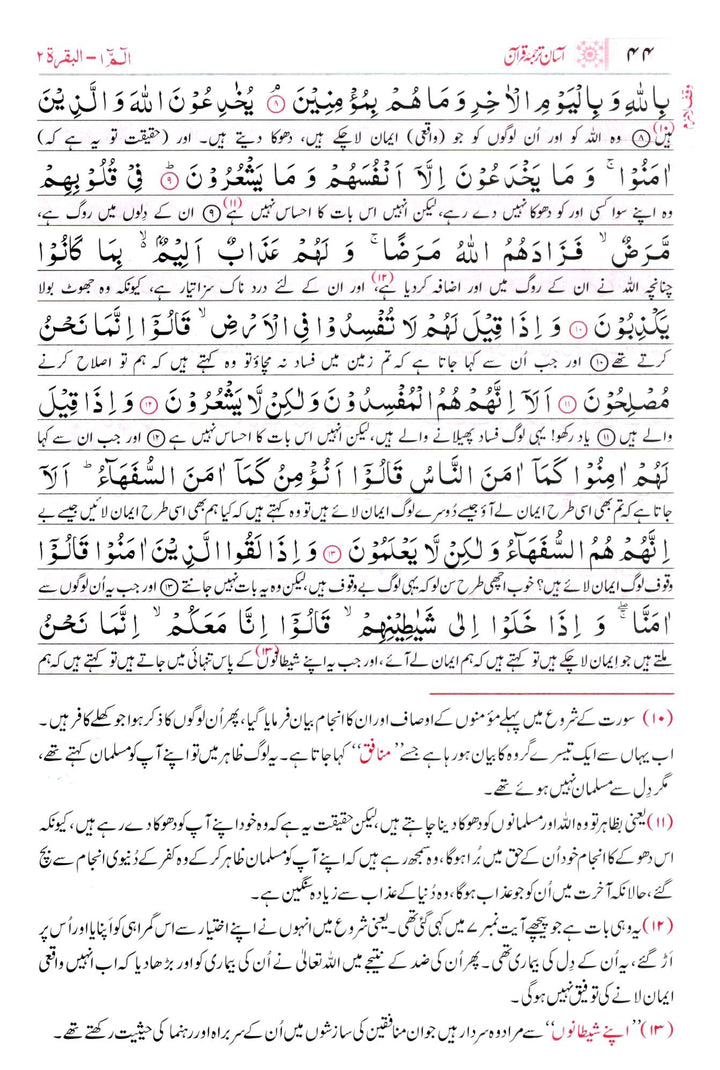 ۴۴ آسان ترجمۂ قرآن الٓمّٓ ۱ – البقرۃ ۲
بِاللّٰهِ وَ بِالْيَوْمِ الْاٰخِرِ وَمَا هُمْ بِمُؤْمِنِيْنَ ۘ ۸ يُخٰدِعُوْنَ اللّٰهَ وَ الَّذِيْنَ
وقف لازم
ہیں(۱۰) ۸ وہ اللہ کو اور اُن لوگوں کو جو (واقعی) ایمان لاچکے ہیں، دھوکا دیتے ہیں۔ اور (حقیقت تو یہ ہے کہ)
اٰمَنُوْا ۚ وَ مَا يَخْدَعُوْنَ اِلَّاۤ اَنْفُسَهُمْ وَ مَا يَشْعُرُوْنَ ؕ ۹ فِيْ قُلُوْبِهِمْ
وہ اپنے سوا کسی اور کو دھوکا نہیں دے رہے، لیکن انہیں اس بات کا احساس نہیں ہے(۱۱) ۹ ان کے دِلوں میں روگ ہے،
مَّرَضٌ ۙ فَزَادَهُمُ اللّٰهُ مَرَضًا ۚ وَ لَهُمْ عَذَابٌ اَلِيْمٌۢ ۙ۬ بِمَا كَانُوْا
چنانچہ اللہ نے ان کے روگ میں اور اضافہ کردیا ہے(۱۲)، اور ان کے لئے درد ناک سزا تیار ہے، کیونکہ وہ جھوٹ بولا
يَكْذِبُوْنَ ۱۰ وَ اِذَا قِيْلَ لَهُمْ لَا تُفْسِدُوْا فِي الْاَرْضِ ۙ قَالُوْۤا اِنَّمَا نَحْنُ
کرتے تھے ۱۰ اور جب اُن سے کہا جاتا ہے کہ تم زمین میں فساد نہ مچاؤ تو وہ کہتے ہیں کہ ہم تو اصلاح کرنے
مُصْلِحُوْنَ ۱۱ اَلَاۤ اِنَّهُمْ هُمُ الْمُفْسِدُوْنَ وَلٰكِنْ لَّا يَشْعُرُوْنَ ۱۲ وَ اِذَا قِيْلَ
والے ہیں ۱۱ یاد رکھو! یہی لوگ فساد پھیلانے والے ہیں، لیکن انہیں اس بات کا احساس نہیں ہے ۱۲ اور جب ان سے کہا
لَهُمْ اٰمِنُوْا كَمَاۤ اٰمَنَ النَّاسُ قَالُوْۤا اَنُؤْمِنُ كَمَاۤ اٰمَنَ السُّفَهَآءُ ؕ اَلَاۤ
جاتا ہے کہ تم بھی اسی طرح ایمان لے آؤ جیسے دُوسرے لوگ ایمان لائے ہیں تو وہ کہتے ہیں کہ کیا ہم بھی اسی طرح ایمان لائیں جیسے بے
اِنَّهُمْ هُمُ السُّفَهَآءُ وَ لٰكِنْ لَّا يَعْلَمُوْنَ ۱۳ وَ اِذَا لَقُوا الَّذِيْنَ اٰمَنُوْا قَالُوْۤا
وقوف لوگ ایمان لائے ہیں؟ خوب اچھی طرح سن لو کہ یہی لوگ بے وقوف ہیں، لیکن وہ یہ بات نہیں جانتے ۱۳ اور جب یہ اُن لوگوں سے
اٰمَنَّا ۖۚ وَ اِذَا خَلَوْا اِلٰى شَيٰطِيْنِهِمْ ۙ قَالُوْۤا اِنَّا مَعَكُمْ ۙ اِنَّمَا نَحْنُ
ملتے ہیں جو اِیمان لاچکے ہیں تو کہتے ہیں کہ ہم ایمان لے آئے، اور جب یہ اپنے شیطانوں(۱۳) کے پاس تنہائی میں جاتے ہیں تو کہتے ہیں کہ ہم
(۱۰) سورت کے شروع میں پہلے مؤمنوں کے اوصاف اور ان کا انجام بیان فرمایا گیا، پھر اُن لوگوں کا ذکر ہوا جو کھلے کافر ہیں۔
اب یہاں سے ایک تیسرے گروہ کا بیان ہو رہا ہے جسے ’’منافق‘‘ کہا جاتا ہے۔ یہ لوگ ظاہر میں تو اپنے آپ کو مسلمان کہتے تھے،
مگر دِل سے مسلمان نہیں ہوئے تھے۔
(۱۱) یعنی بظاہر تو وہ اللہ اور مسلمانوں کو دھوکا دینا چاہتے ہیں، لیکن حقیقت یہ ہے کہ وہ خود اپنے آپ کو دھوکا دے رہے ہیں، کیونکہ
اس دھوکے کا انجام خود اُن کے حق میں بُرا ہوگا، وہ سمجھ رہے ہیں کہ اپنے آپ کو مسلمان ظاہر کرکے وہ کفر کے دُنیوی انجام سے بچ
گئے، حالانکہ آخرت میں اُن کو جو عذاب ہوگا، وہ دُنیا کے عذاب سے زیادہ سنگین ہے۔
(۱۲) یہ وہی بات ہے جو پیچھے آیت نمبر ۷ میں کہی گئی تھی۔ یعنی شروع میں انہوں نے اپنے اختیار سے اس گمراہی کو اَپنایا اور اُس پر
اَڑ گئے، یہ اُن کے دِل کی بیماری تھی۔ پھر اُن کی ضد کے نتیجے میں اللہ تعالیٰ نے اُن کی بیماری کو اور بڑھادیا کہ اب انہیں واقعی
ایمان لانے کی توفیق نہیں ہوگی۔
(۱۳) ’’اپنے شیطانوں‘‘ سے مراد وہ سردار ہیں جو ان منافقین کی سازشوں میں اُن کے سربراہ اور رہنما کی حیثیت رکھتے تھے۔